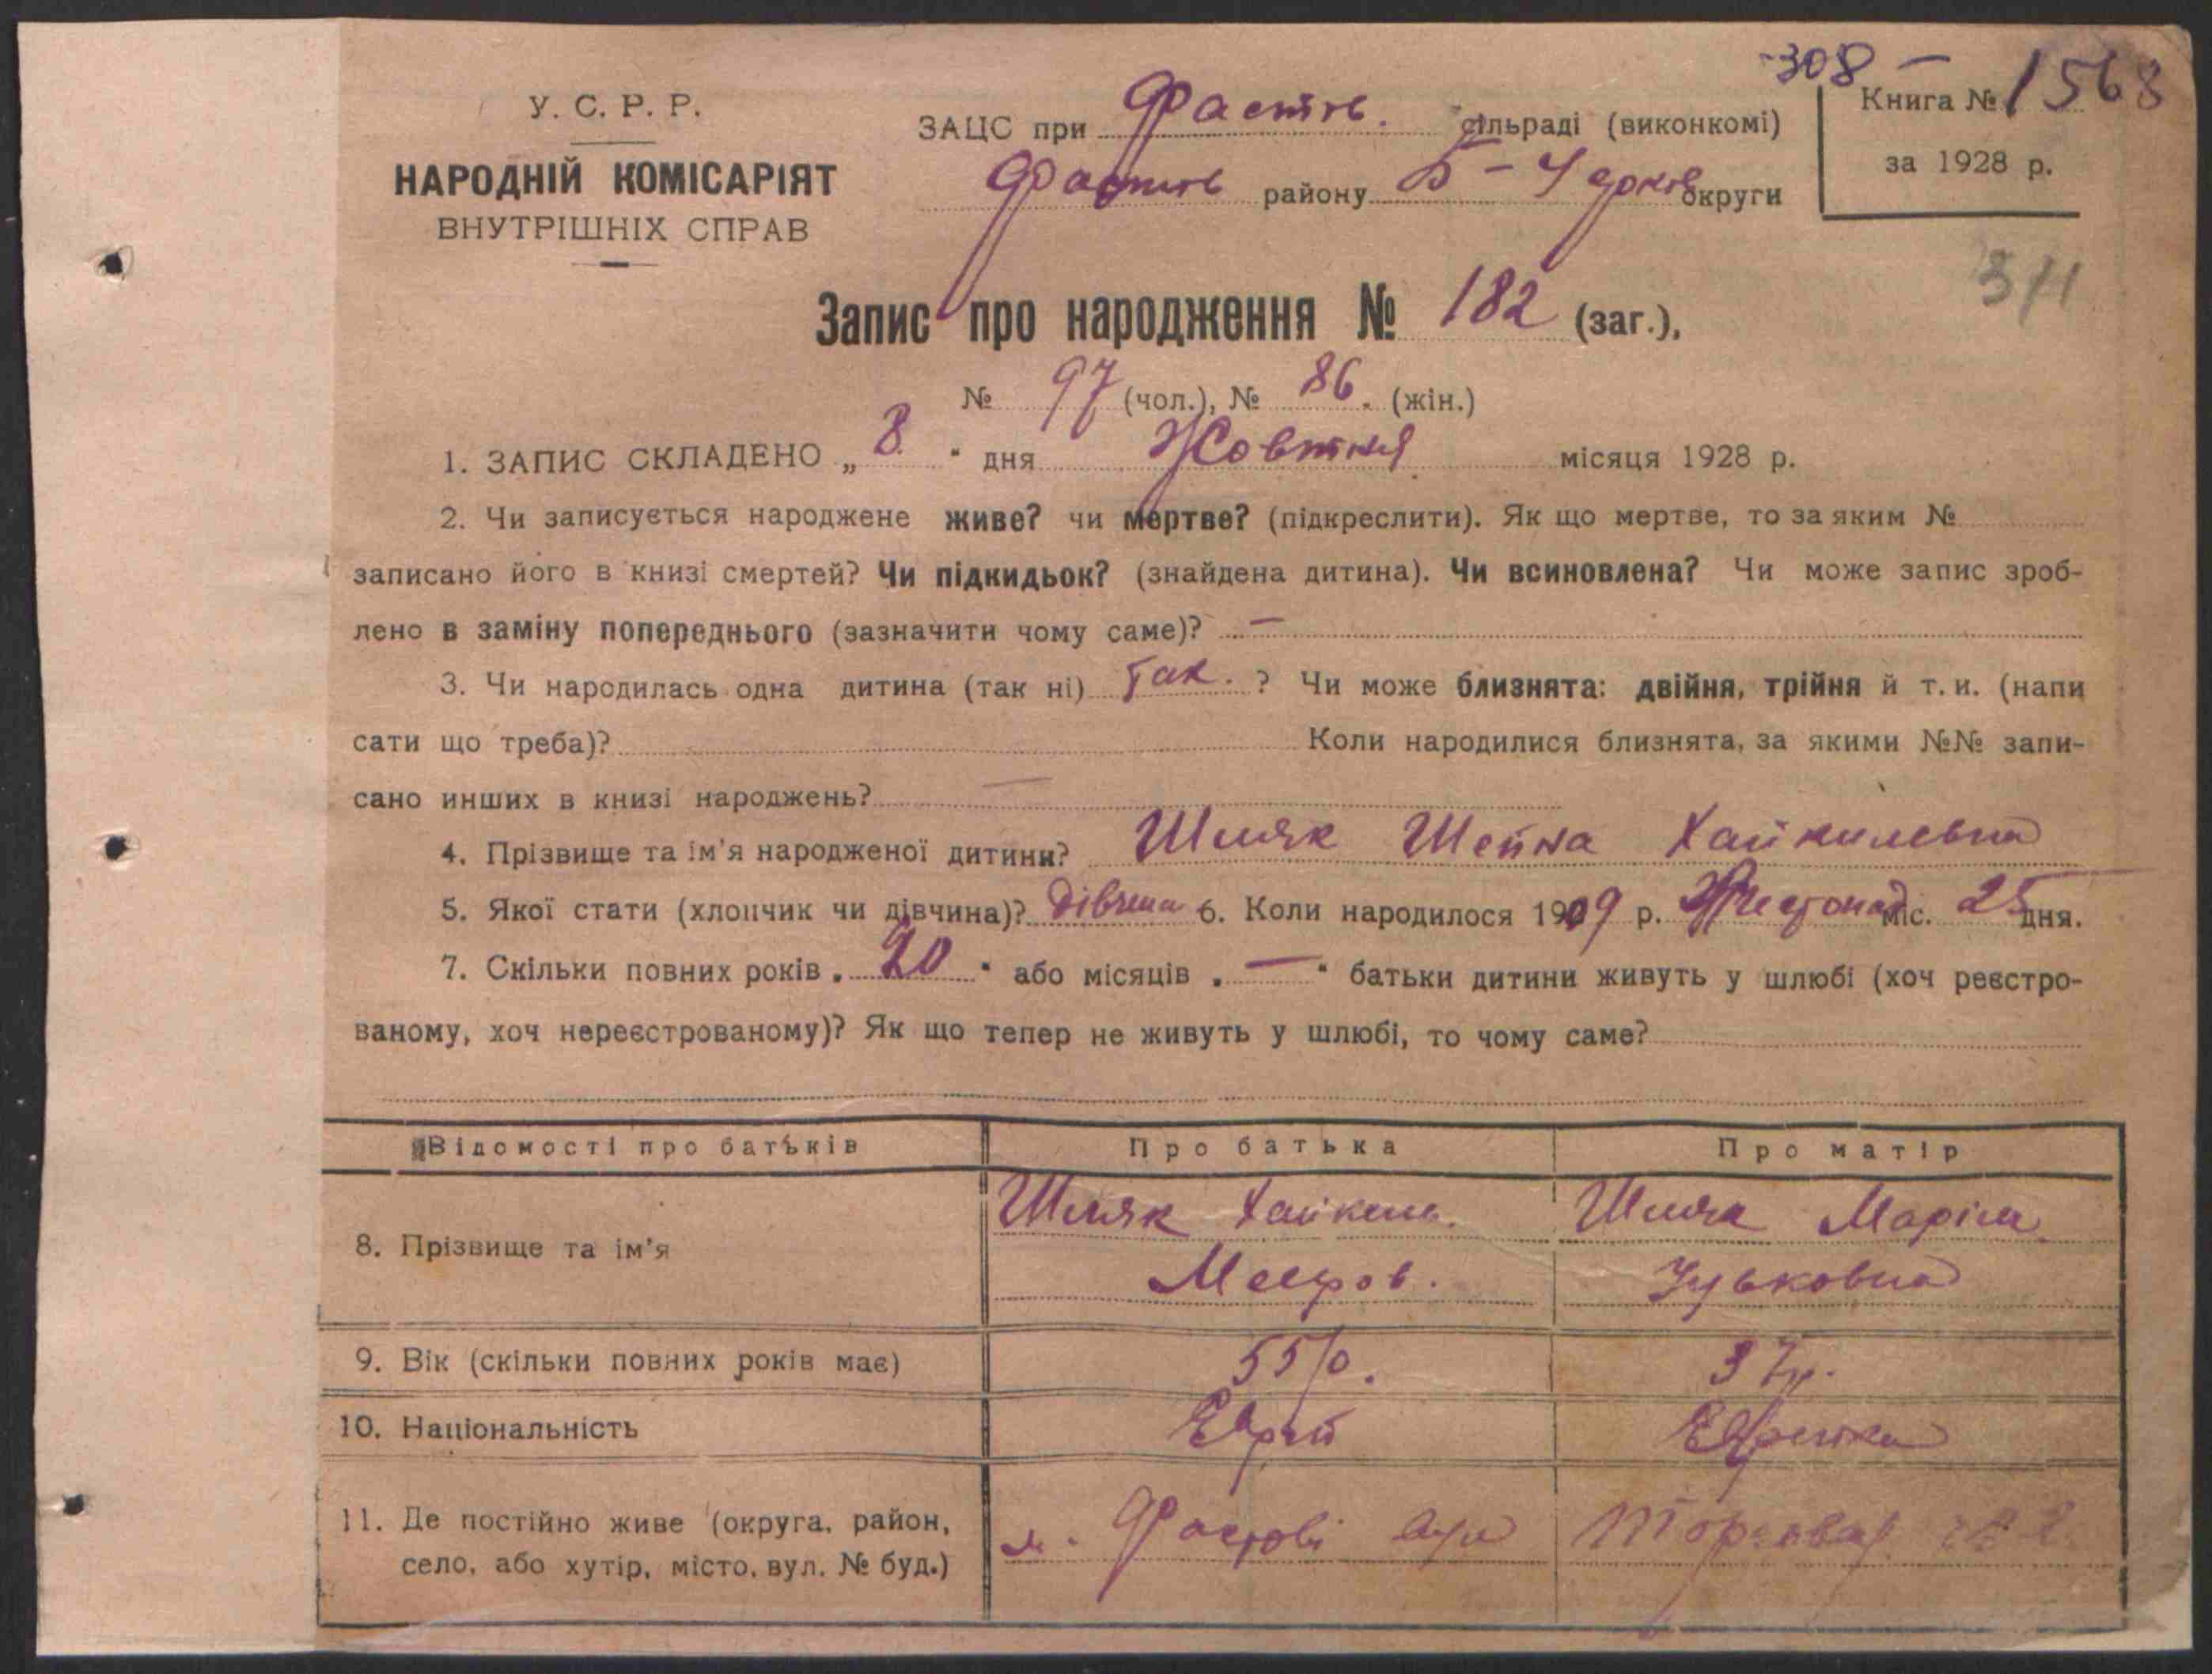 -308 -
У. С. Р. Р.
НАРОДНІЙ КОМІСАРІЯТ
ВНУТРІШНІХ СПРАВ
ЗАЦС при Фастів. сільраді (виконкомі)
Фастів району Б-Церків округи
Книга № 1568
за 1928 р.
311
Запис про народження № 182 (заг.),
№ 97 (чол.), № 86. (жін.)
1. ЗАПИС СКЛАДЕНО „ 8 " дня Жовтня місяця 1928 р.
2. Чи записується народжене живе? чи мертве? (підкреслити). Як що мертве, то за яким №
записано його в книзі смертей? Чи підкидьок? (знайдена дитина). Чи всиновлена? Чи може запис зроб-
лено в заміну попереднього (зазначити чому саме)? —
3. Чи народилась одна дитина (так ні) Так. ? Чи може близнята: двійня, трійня й т. и. (напи
сати що треба)? Коли народилися близнята, за якими №№ запи-
сано инших в книзі народжень? —
4. Прізвище та ім'я народженої дитини? Шляк Шейва Хайкилевна
5. Якої статі (хлопчик чи дівчина)? Дівчина 6. Коли народилося 1909 р. Листопад міс. 25 дня.
7. Скільки повних років „ 20 " або місяців „ — " батьки дитини живуть у шлюбі (хоч реєстро-
ваному, хоч нереєстрованому)? Як що тепер не живуть у шлюбі, то чому саме?
Відомості про батьків Про батька Про матір
8. Прізвище та ім'я
Шляк Хайкель. Шляк Марія
Меєров. Зуськовна
9. Вік (скільки повних років має) 55 р. 37 р.
10. Національність Еврей Еврейка
11. Де постійно живе (округа, район,
село, або хутір, місто, вул. № буд.)
м. Фастові вул Торгова